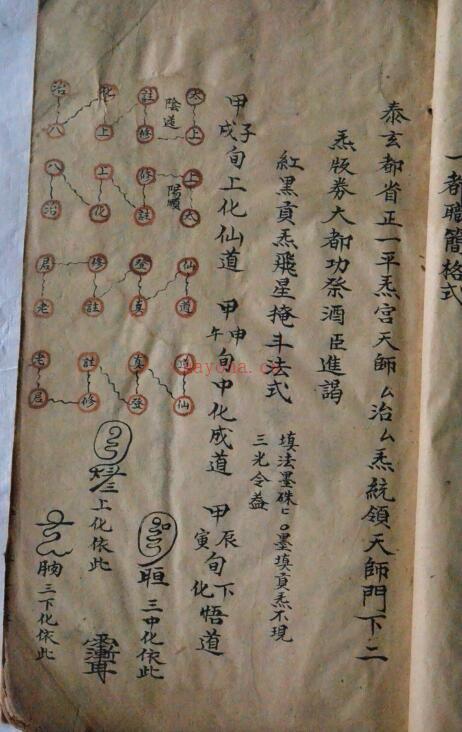 一都職簡格式
泰玄都省正一平炁宮天師ㄙ治ㄙ炁統領天師門下二
炁版券大都功祭酒臣進謁
紅黑貢炁飛星掩斗法式
填法墨硃匕〇墨填貢炁不現
三光令益
甲子戌旬上化仙道 甲申午旬中化成道 甲辰寅旬下化悟道
太 註 化 治
陰逆
上 修 上 八
上 修 上 八
陽順
太 註 化 治
仙 登 修 君
道 真 註 老
道 真 註 老
仙 登 修 君
上化依此
三中化依此
三下化依此
kayona.cn